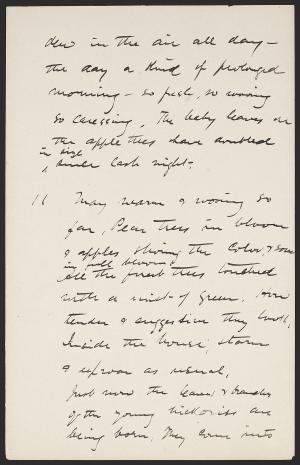 dew in the air all day –
the day a kind of prolonged
morning – so fresh, so wooing
so caressing. The baby leaves on
the apple trees have doubled
in size
since last night.
11 May warm & wooing so
far, Pear trees in bloom
& apples showing the color, & some
in full bloom
all the forest trees touched
with a mist of green. How
tender & suggestive they look,
Inside the house, storm
& uproar as usual,
Just now the leaves & branches
of the young hickories are
being born, They come into